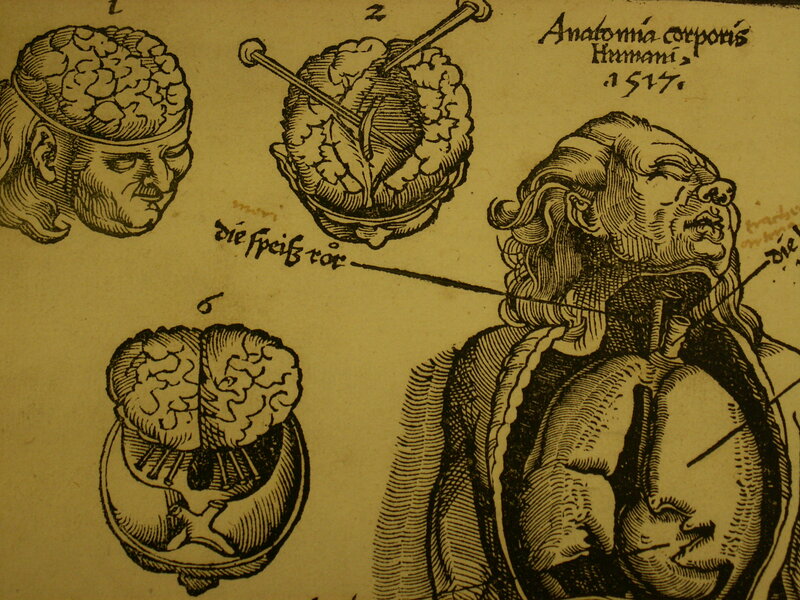 1
2
Anatomia corporis
Humani,
.1517.
die speiß rör
die
6